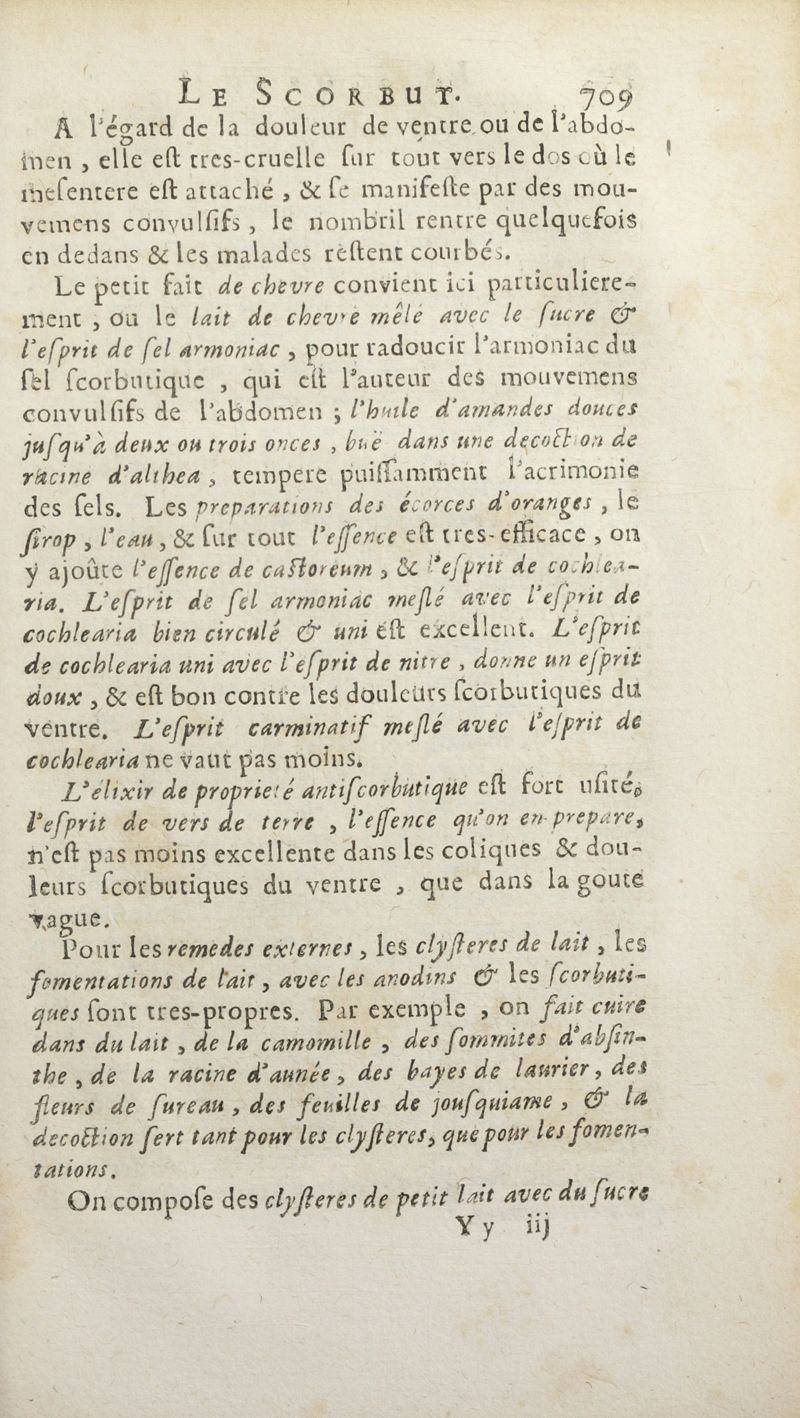 LE SCORBUT. 709
A l'égard de la douleur de ventre ou de l'abdo-
men, elle eſt tres-cruelle ſur tout vers le dos où le
meſentere eſt attaché, & ſe manifeſte par des mou-
vemens convulſifs, le nombril rentre quelquefois
en dedans & les malades reſtent courbés.
Le petit fait de chevre convient ici particuliere-
ment, ou le lait de chevre mêlé avec le ſucre &
l'eſprit de ſel armoniac, pour radoucir l'armoniac du
ſel ſcorbutique, qui eſt l'auteur des mouvemens
convulſifs de l'abdomen ; l'huile d'amandes douces
juſqu'à deux ou trois onces, buë dans une decoction de
racine d'althea, tempere puiſſamment l'acrimonie
des ſels. Les preparations des écorces d'oranges, le
ſirop, l'eau, & ſur tout l'eſſence eſt tres-efficace, on
y ajoûte l'eſſence de caſtoreum, & l'eſprit de cochlea-
ria. L'eſprit de ſel armoniac meſlé avec l'eſprit de
cochlearia bien circulé & uni eſt excellent. L'eſprit
de cochlearia uni avec l'eſprit de nitre, donne un eſprit
doux, & eſt bon contre les douleurs ſcorbutiques du
ventre. L'eſprit carminatif meſlé avec l'eſprit de
cochlearia ne vaut pas moins.
L'élixir de proprieté antiſcorbutique eſt fort uſité,
l'eſprit de vers de terre, l'eſſence qu'on en prepare,
n'eſt pas moins excellente dans les coliques & dou-
leurs ſcorbutiques du ventre, que dans la goute
vague.
Pour les remedes externes, les clyſteres de lait, les
fomentations de lait, avec les anodins & les ſcorbuti-
ques ſont tres-propres. Par exemple, on fait cuire
dans du lait, de la camomille, des ſommites d'abſin-
the, de la racine d'aunée, des bayes de laurier, des
fleurs de ſureau, des feuilles de jouſquiame, & la
decoction ſert tant pour les clyſteres, que pour les fomen-
tations.
On compoſe des clyſteres de petit lait avec du ſucre
Yy iij